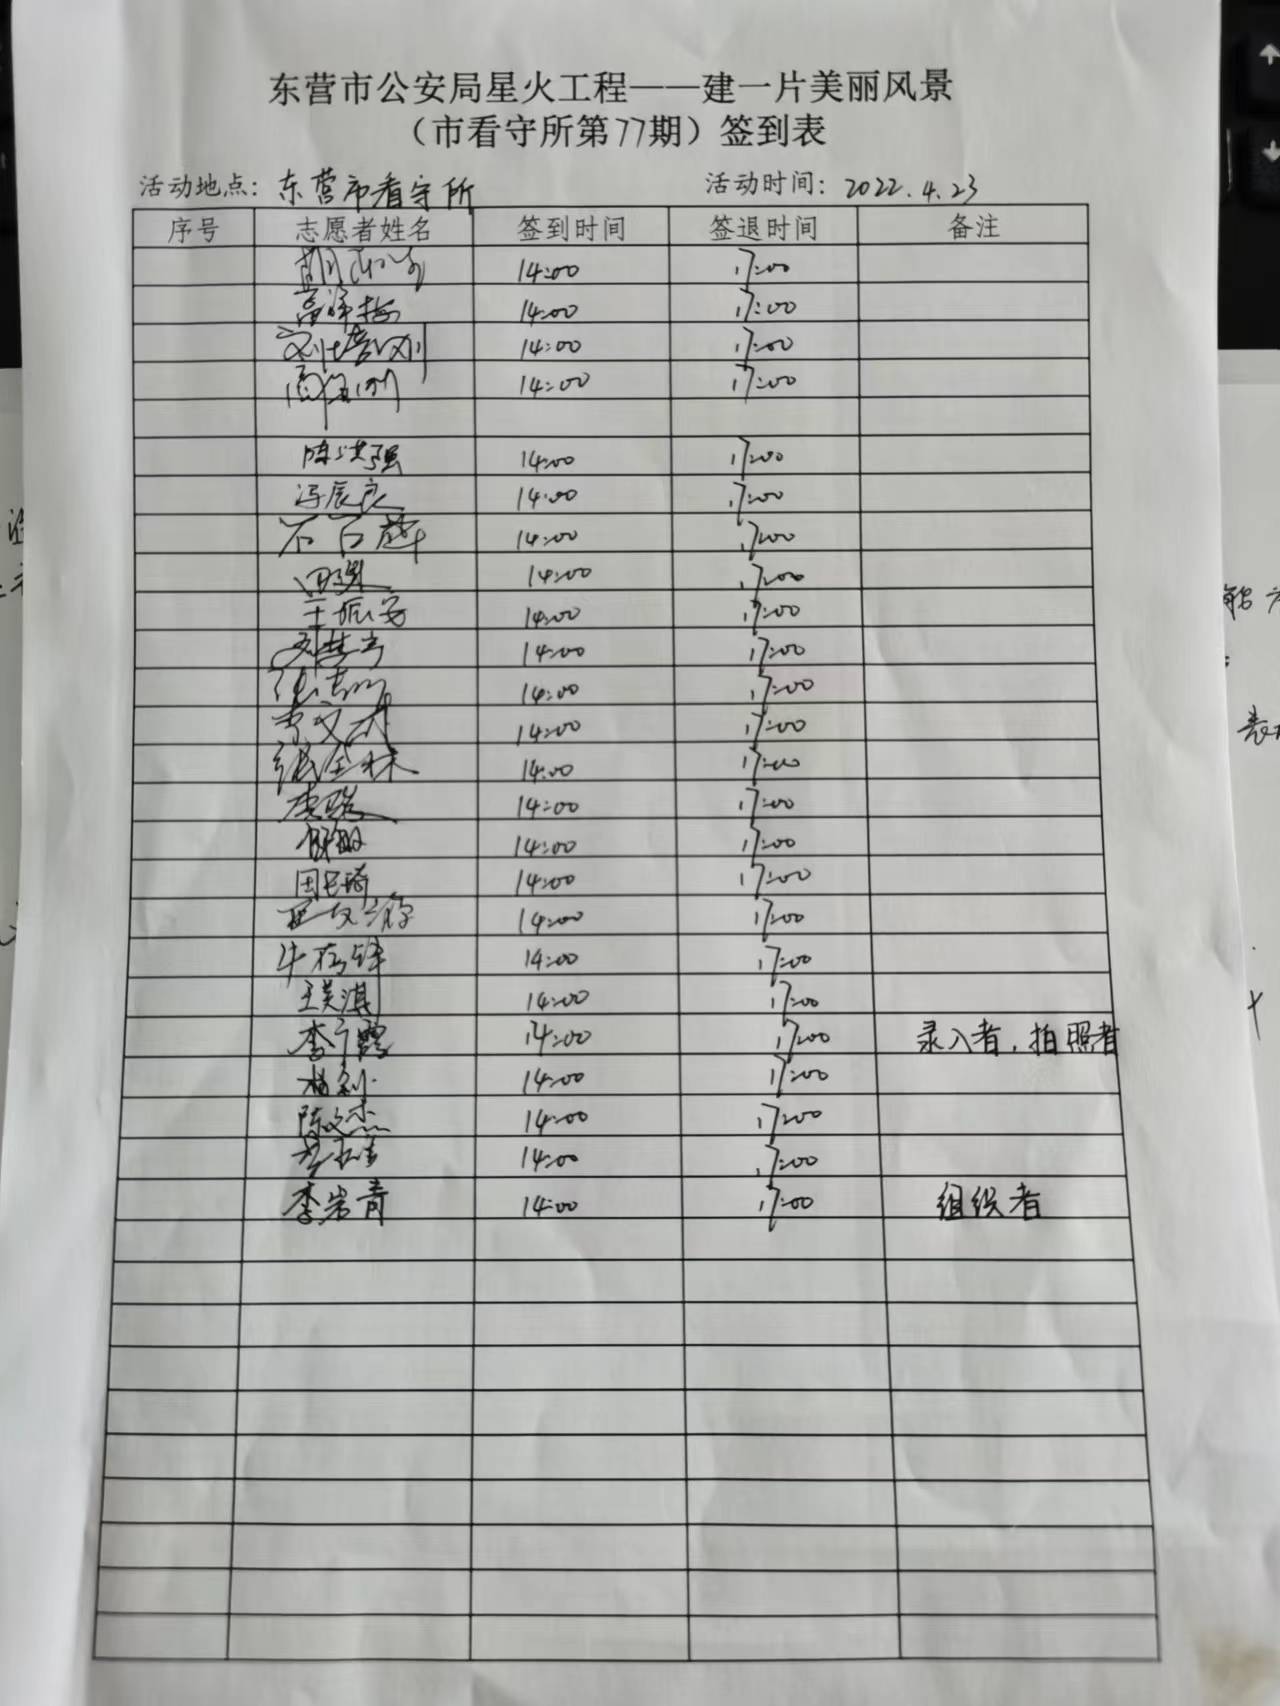 东营市公安局星火工程——建一片美丽风景
（市看守所第77期）签到表
活动地点：东营市看守所 活动时间：2022.4.23
序号 志愿者姓名 签到时间 签退时间 备注
14:00 17:00
14:00 17:00
刘培刚 14:00 17:00
14:00 17:00
陈洪强 14:00 17:00
冯辰良 14:00 17:00
14:00 17:00
14:00 17:00
王振安 14:00 17:00
14:00 17:00
14:00 17:00
李文斌 14:00 17:00
张全林 14:00 17:00
李骏 14:00 17:00
14:00 17:00
田长琦 14:00 17:00
14:00 17:00
14:00 17:00
王美淇 14:00 17:00
李广霞 14:00 17:00 录入者，拍照者
14:00 17:00
陈文杰 14:00 17:00
14:00 17:00
李岩青 14:00 17:00 组织者